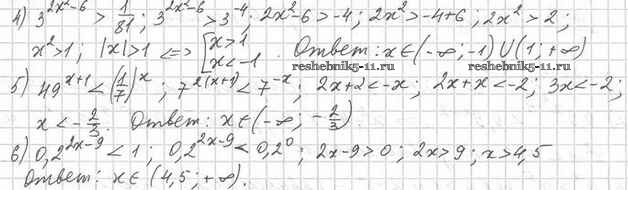 4) 3^(2x²-6) > 1/81 ; 3^(2x²-6) > 3^(-4) ; 2x²-6 > -4 ; 2x² > -4+6 ; 2x² > 2 ;
x² > 1 ; |x| > 1 <=> [ x > 1
x < -1 . Ответ: x ∈ (-∞; -1) ∪ (1; +∞)
reshebnik5-11.ru reshebnik5-11.ru
5) 49^(x+1) < (1/7)^x ; 7^(2(x+1)) < 7^(-x) ; 2x+2 < -x ; 2x+x < -2 ; 3x < -2 ;
x < -2/3 . Ответ: x ∈ (-∞; -2/3)
6) 0,2^(2x-9) < 1 ; 0,2^(2x-9) < 0,2^0 ; 2x-9 > 0 ; 2x > 9 ; x > 4,5
Ответ: x ∈ (4,5 ; +∞).